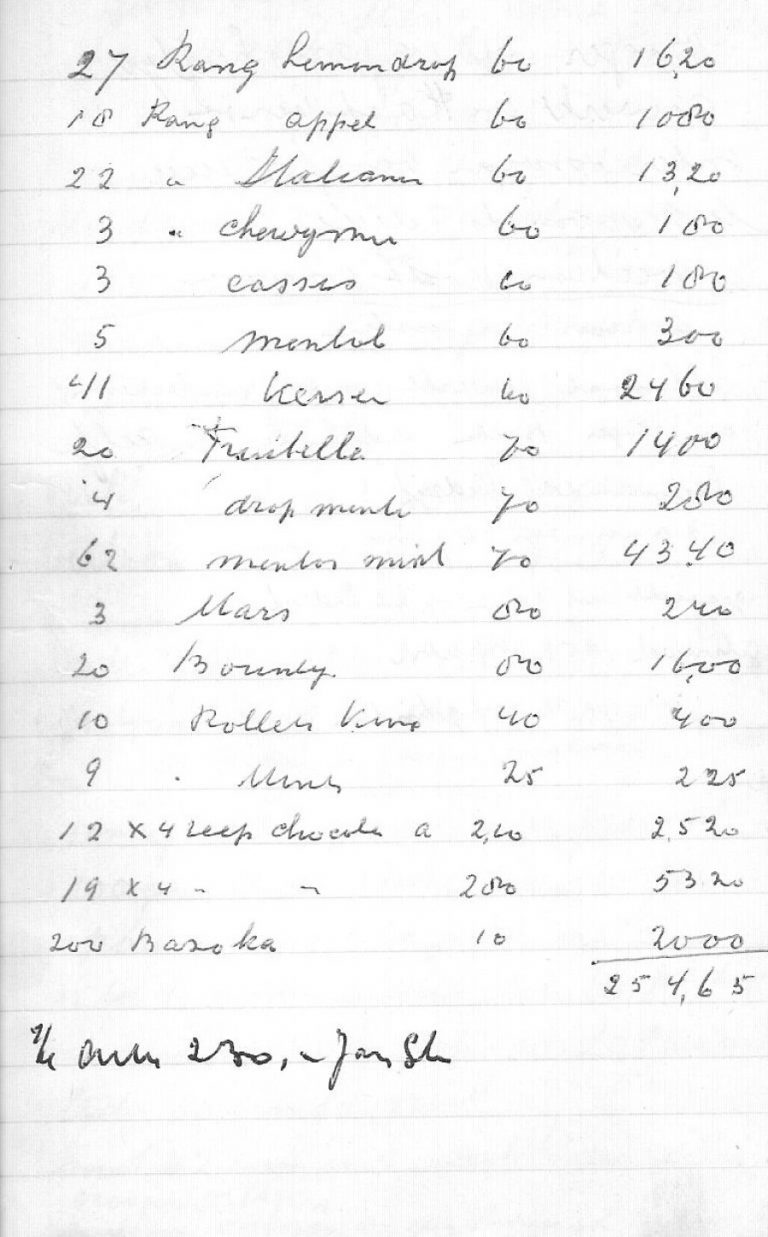 27 Rang Lemondrop 60 16,20
18 Rang appel 60 1080
22 " Italiaan 60 13,20
3 " chewgum 60 180
3 cassis 60 180
5 mentol 60 300
41 Kersen 60 2460
20 Fruitella 70 1400
4 drop mento 70 280
62 mentos mint 70 43,40
3 Mars 80 240
20 Bounty 80 16,00
10 Rollets King 40 400
9 " 25 225
12 x 4 reep chocola a 2,10 2,520
19 x 4 " " 280 53.20
200 Bazoka 10 2000
254,65
230,-